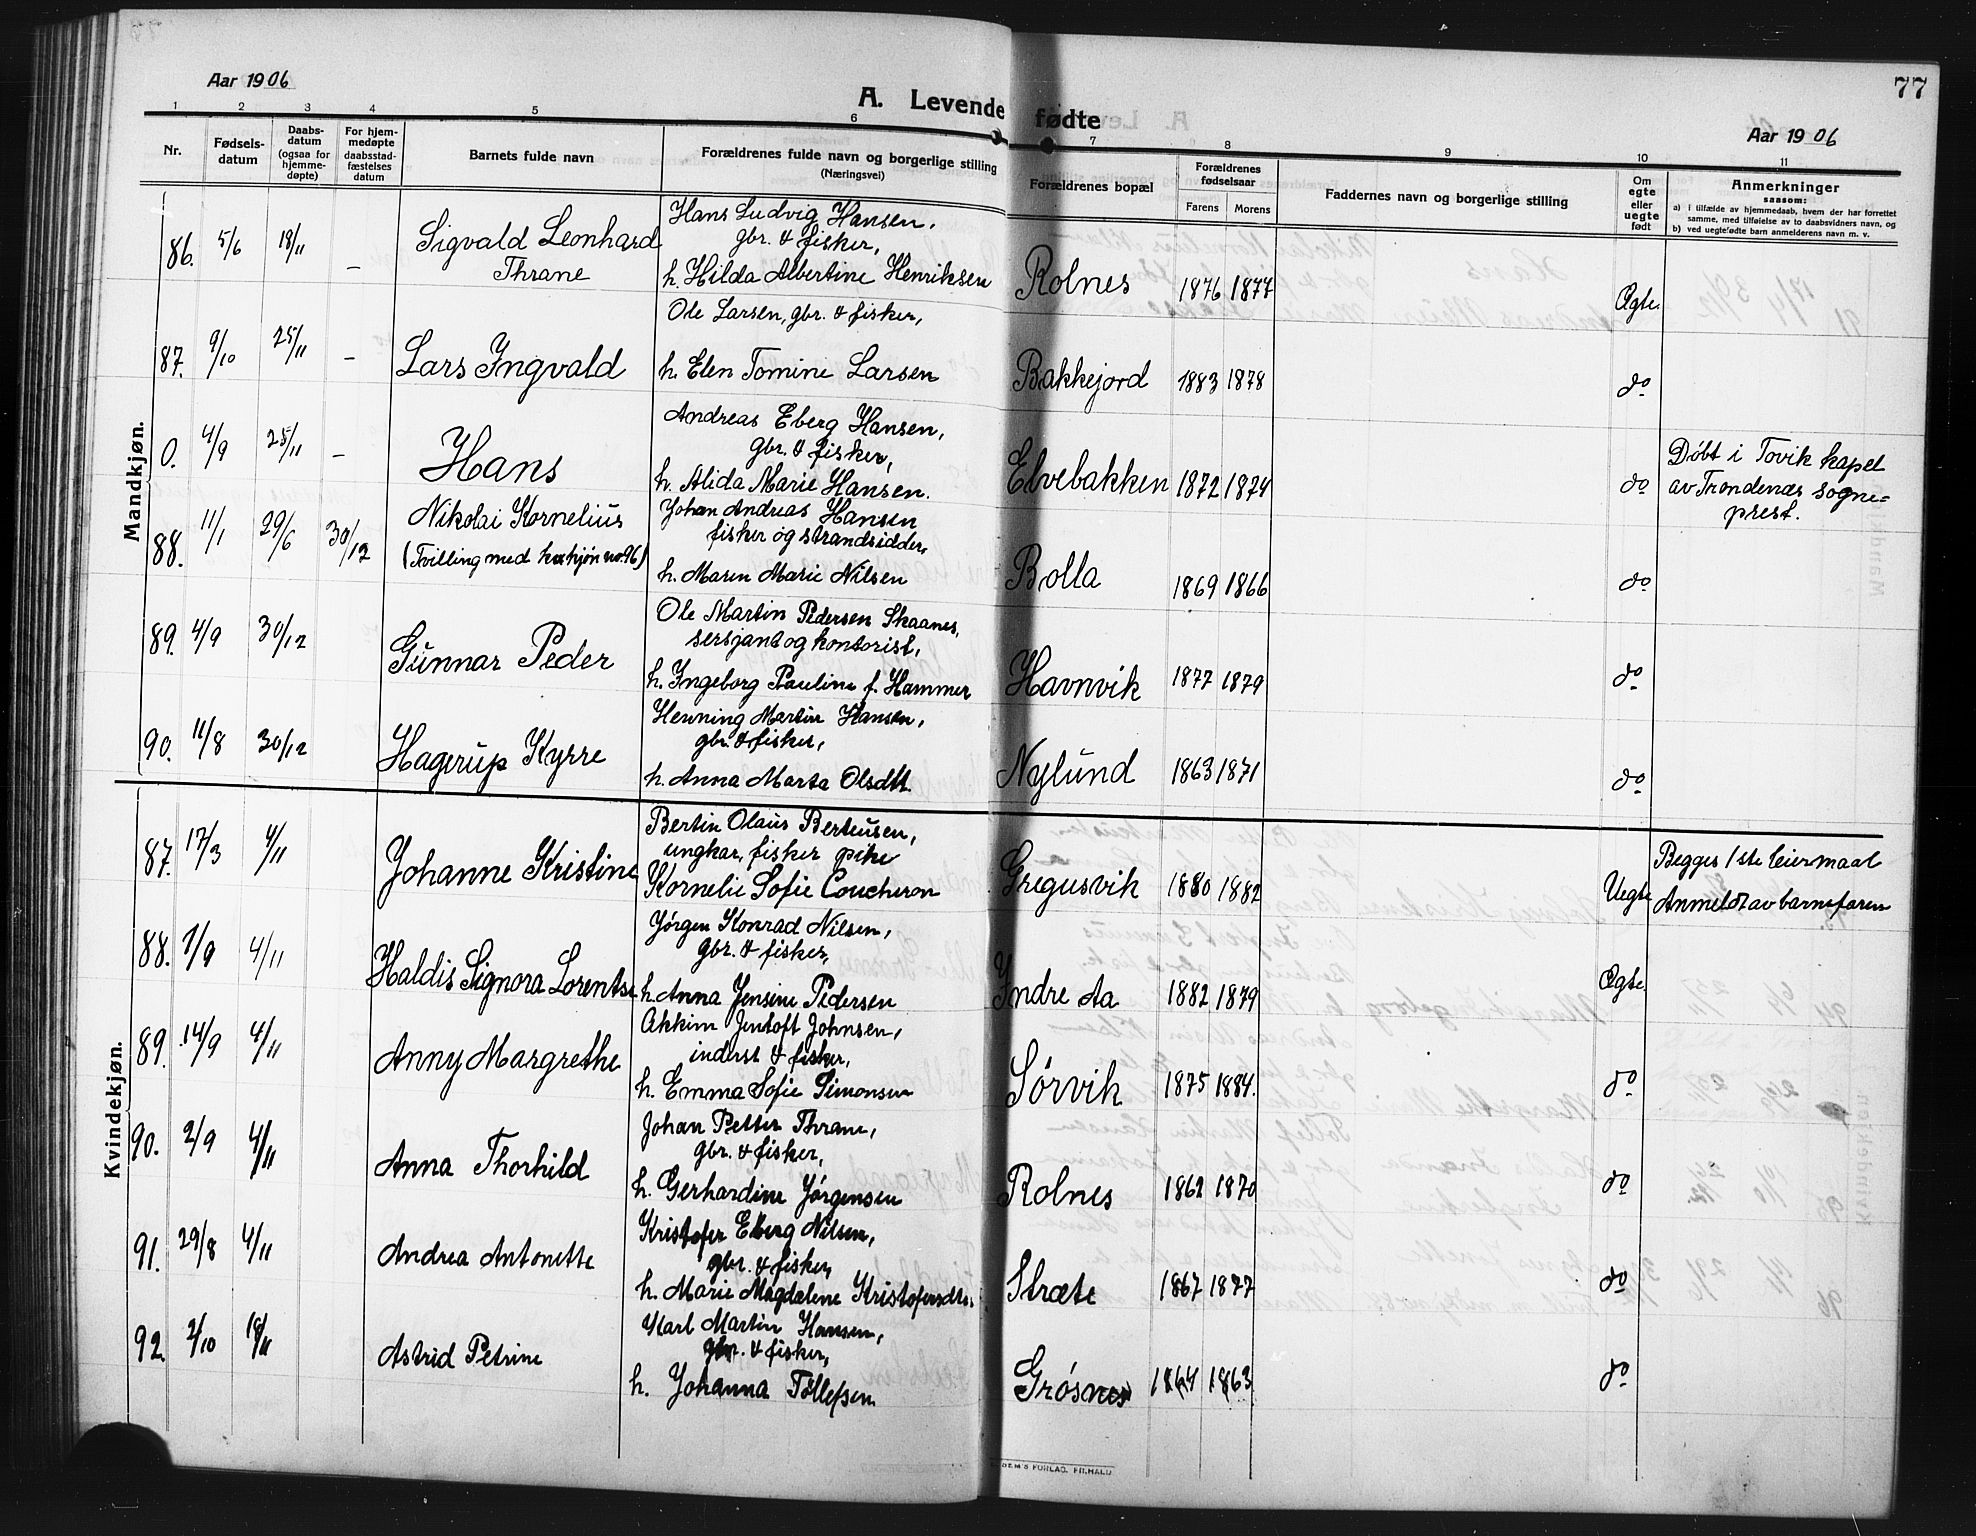 77
Aar 1906
A. Levende fødte
Aar 1906
1 2 3 4 5 6 7 8 9 10 11
Nr.
Fødsels-
datum
Daabs-
datum
(ogsaa for
hjemme-
døpte)
For hjem-
medøpte
daabsstad-
fæstelses
datum
Barnets fulde navn
Forældrenes fulde navn og borgerlige stilling
(Næringsvei)
Forældrenes bopæl
Forældrenes
fødselsaar
Farens Morens
Faddernes navn og borgerlige stilling
Om
egte
eller
uegte
født
Anmerkninger
saasom:
a) i tilfælde av hjemmedaab, hvem der har forrettet
samme, med tilføielse av to daabsvidners navn, og
b) ved uegtefødte barn anmelderens navn m. v.
Mandkjøn.
86. 5/6 18/11 —
Sigvald Leonhard
Thrane
Hans Ludvig Hansen,
gbr. & fisker,
h. Hilda Albertine Henriksen
Rolnes 1876 1877 Ægte.
87. 9/10 25/11 —
Lars Ingvald
Ole Larsen, gbr. & fisker,
h. Elen Tomine Larsen
Bakkejord 1883 1878 do
0. 4/9 25/11 —
Hans
Andreas Eberg Hansen,
gbr. & fisker,
h. Alida Marie Hansen.
Elvebakken 1872 1874 do
Døbt i Tovik kapel
av Trondenæs sogne=
prest.
88. 11/1 29/6 30/12
Nikolai Kornelius
(Tvilling med kv.kjøn no. 96)
Johan Andreas Hansen
fisker og strandsidder,
h. Maren Marie Nilsen
Bolla 1869 1866 do
89. 4/9 30/12
Gunnar Peder
Ole Martin Pedersen Skaanes,
sersjant og kontorist,
h. Ingeborg Pauline f. Hammer
Havnvik 1877 1879 do
90. 11/8 30/12
Hagerup Kyrre
Henning Martin Hansen,
gbr. & fisker,
h. Anna Marta Olsdtt.
Nylund 1863 1871 do
Kvindekjøn.
87. 17/3 4/11
Johanne Kristine
Bertin Olaus Berteusen,
ungkar, fisker pike
Kornelie Sofie Coucheron
Gregusvik 1880 1882 Uegte
Begges 1ste leiermaal
Anmeldt av barnefaren
88. 1/9 4/11
Haldis Signora Lorentse
Jørgen Konrad Nilsen,
gbr. & fisker,
h. Anna Jensine Pedersen
Indre Aa 1882 1879 Ægte.
89. 14/9 4/11
Anny Margrethe
Akkim Jentoft Johnsen,
inderst & fisker,
h. Emma Sofie Simonsen
Sørvik 1875 1884. do
90. 2/9 4/11
Anna Thorhild
Johan Petter Thrane,
gbr. & fisker,
h. Gerhardine Jørgensen
Rolnes 1862 1870 do
91. 29/8 4/11
Andrea Antonette
Kristofer Eberg Nilsen,
gbr. & fisker,
h. Marie Magdalene Kristofersdtr.
Stræte 1867 1877 do
92. 2/10 18/11
Astrid Petrine
Karl Martin Hansen,
gbr. & fisker,
h. Johanna Tollefsen
Grøsnes 1864 1863 do
SEM'S FORLAG. FR.HALD